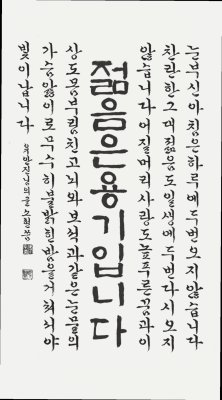 눈부신 아침은 하루에 두번 오지 않습니다
찬란한 그대 젊음도 일생에 두번 다시 오지
않습니다 어질머리 사랑도 높푸른 꿈과 이
젊음은 용기입니다
상도 몸부림친 고뇌와 보석과 같은 눈물의
가슴앓이로 무수히 불 밝힌 밤을 거쳐서야
빛이 납니다
유안진님의 글